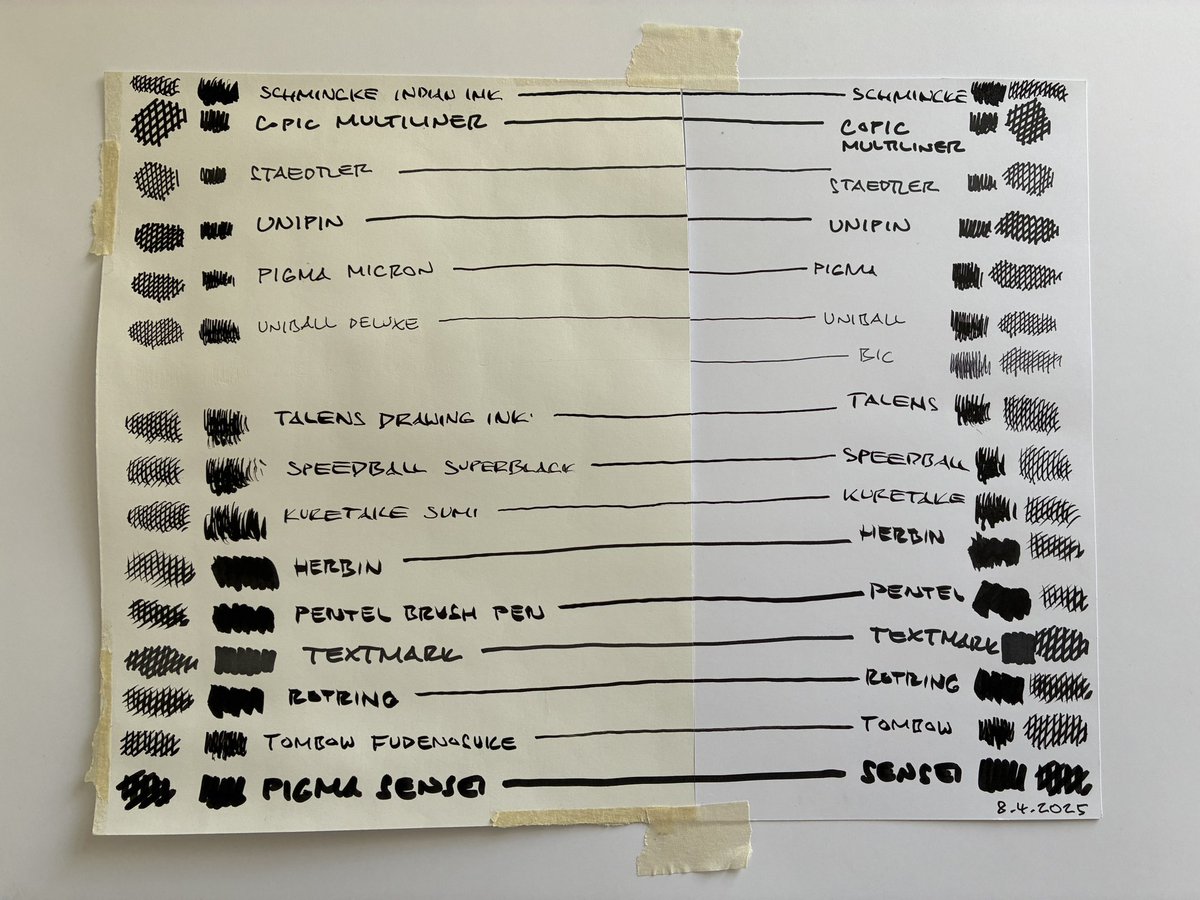 SCHMINCKE INDIAN INK SCHMINCKE
COPIC MULTILINER COPIC
MULTILINER
STAEDTLER STAEDTLER
UNIPIN UNIPIN
PIGMA MICRON PIGMA
UNIBALL DELUXE UNIBALL
BIC
TALENS DRAWING INK TALENS
SPEEDBALL SUPERBLACK SPEEDBALL
KURETAKE SUMI KURETAKE
HERBIN HERBIN
PENTEL BRUSH PEN PENTEL
TEXTMARK TEXTMARK
ROTRING ROTRING
TOMBOW FUDENOSUKE TOMBOW
PIGMA SENSEI SENSEI
8.4.2025